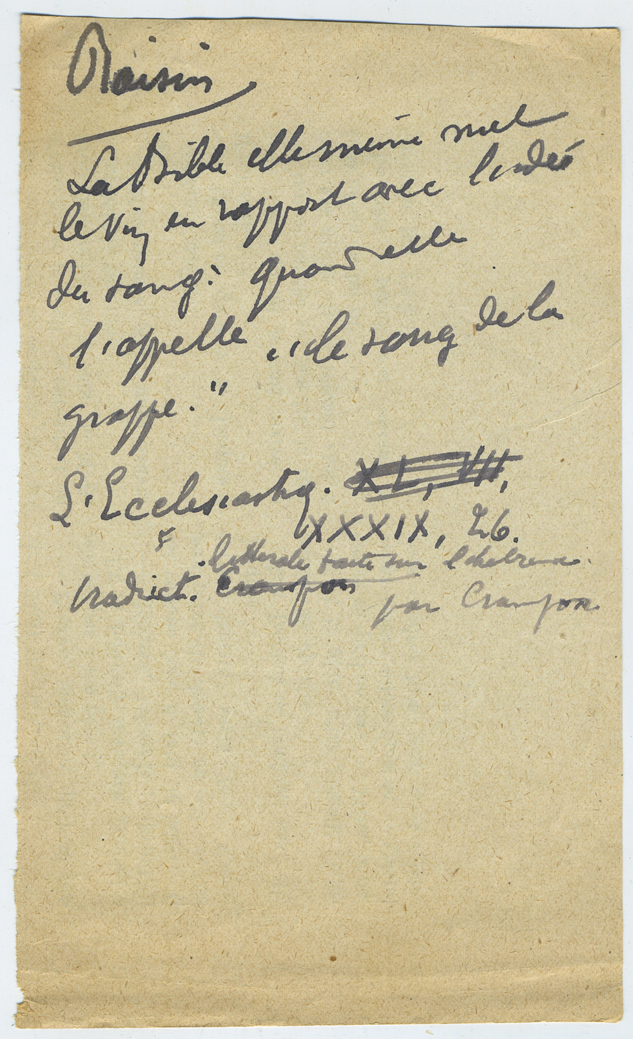 Raisin
La Bible elle même met
le Vin en rapport avec l'idée
du sang: quand elle
l'appelle "le sang de la
grappe."
L'Ecclesiastiq. XL, VII,
XXXIX, 26.
littérale faite sur l'hébreu
traduct. Crampon
par Crampon